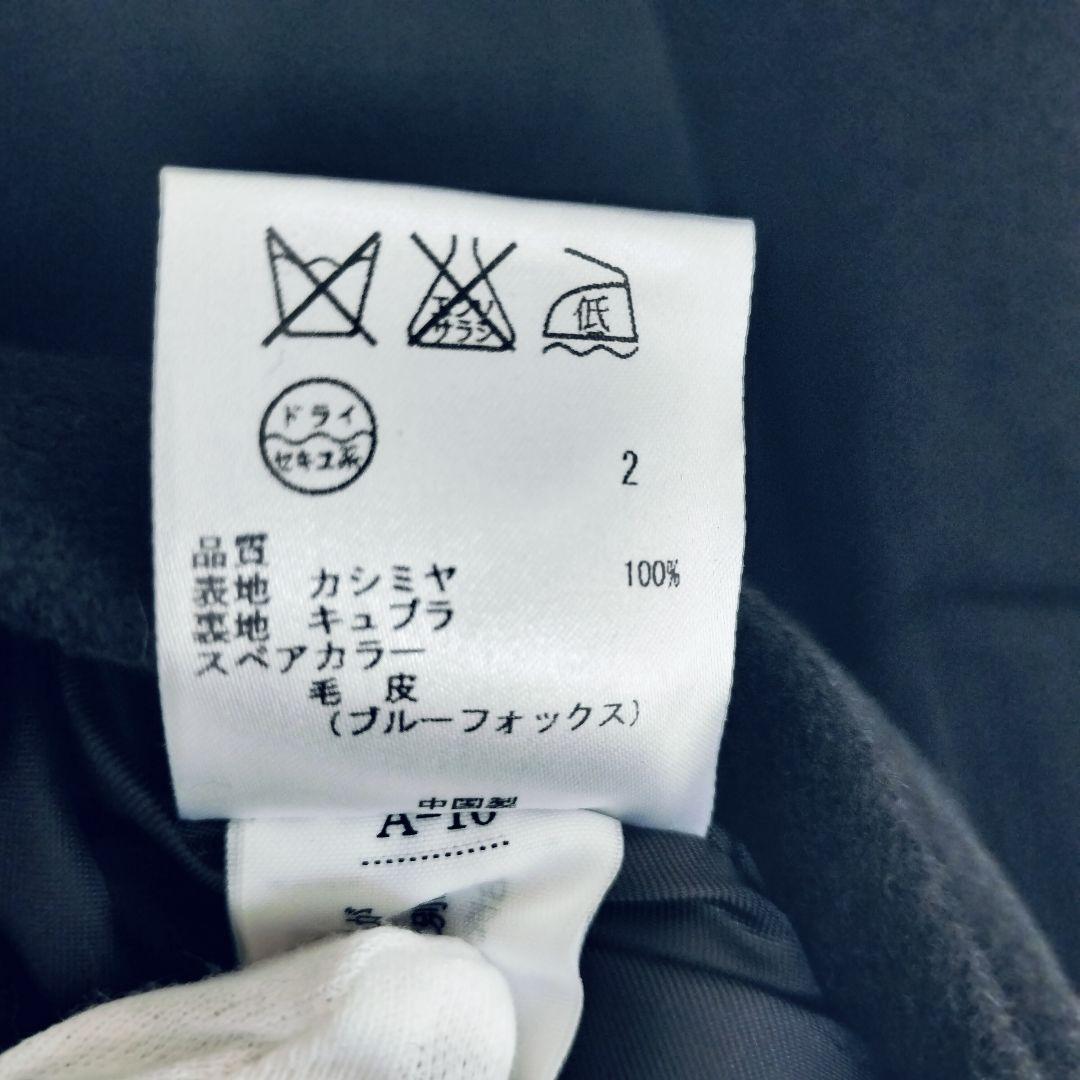 エンソ
サラシ
低
ドライ
セキユ系
2
品質
表地 カシミヤ 100%
裏地 キュプラ
スペアカラー
毛皮
(ブルーフォックス)
中国製
A-10
が
別